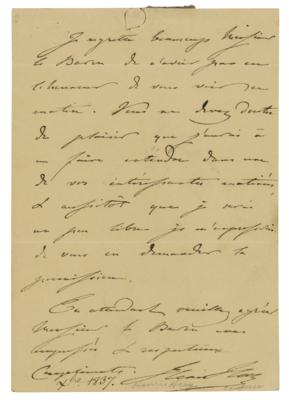 Je regrette beaucoup Monsieur
le Baron de n'avoir pas eu
l'honneur de vous voir ce
matin. Vous ne devez douter
du plaisir que j'aurai à
me faire entendre dans une
de vos intéressantes matinées,
& aussitôt que je serai
un peu libre je m'empresserai
de vous en demander la
permission.
En attendant veuillez agréer
Monsieur le Baron mes
empressés & respectueux
Compliments.
1837.